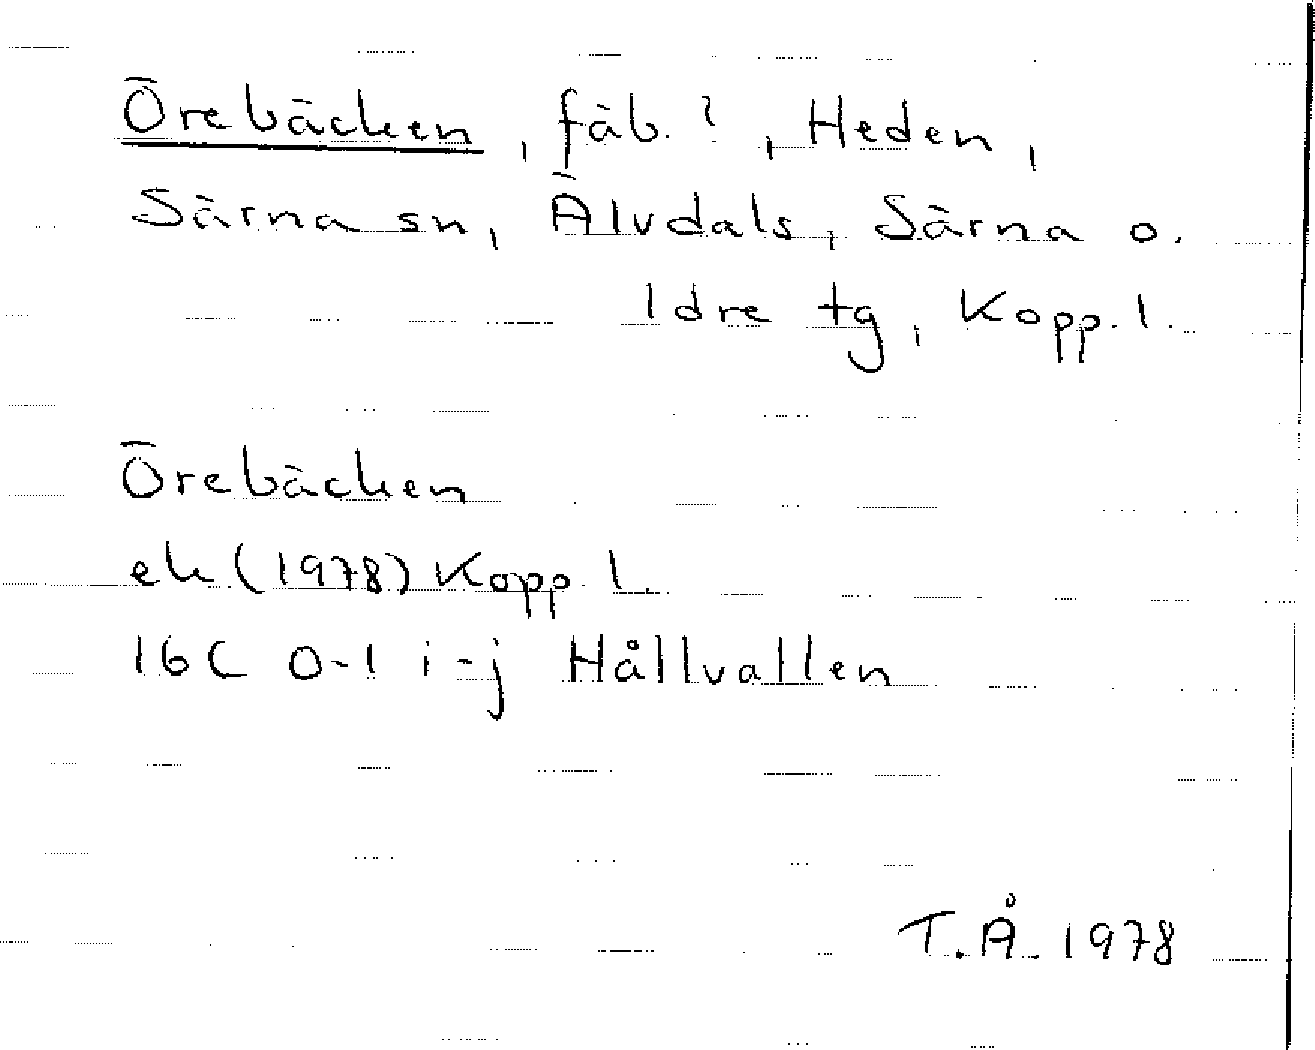 Örebäcken, fäb.?, Heden,
Särna sn, Älvdals, Särna o.
Idre tg, Kopp.l.
Örebäcken
ek (1978) Kopp l.
16C 0-1 i-j Hållvallen
T.Å. 1978